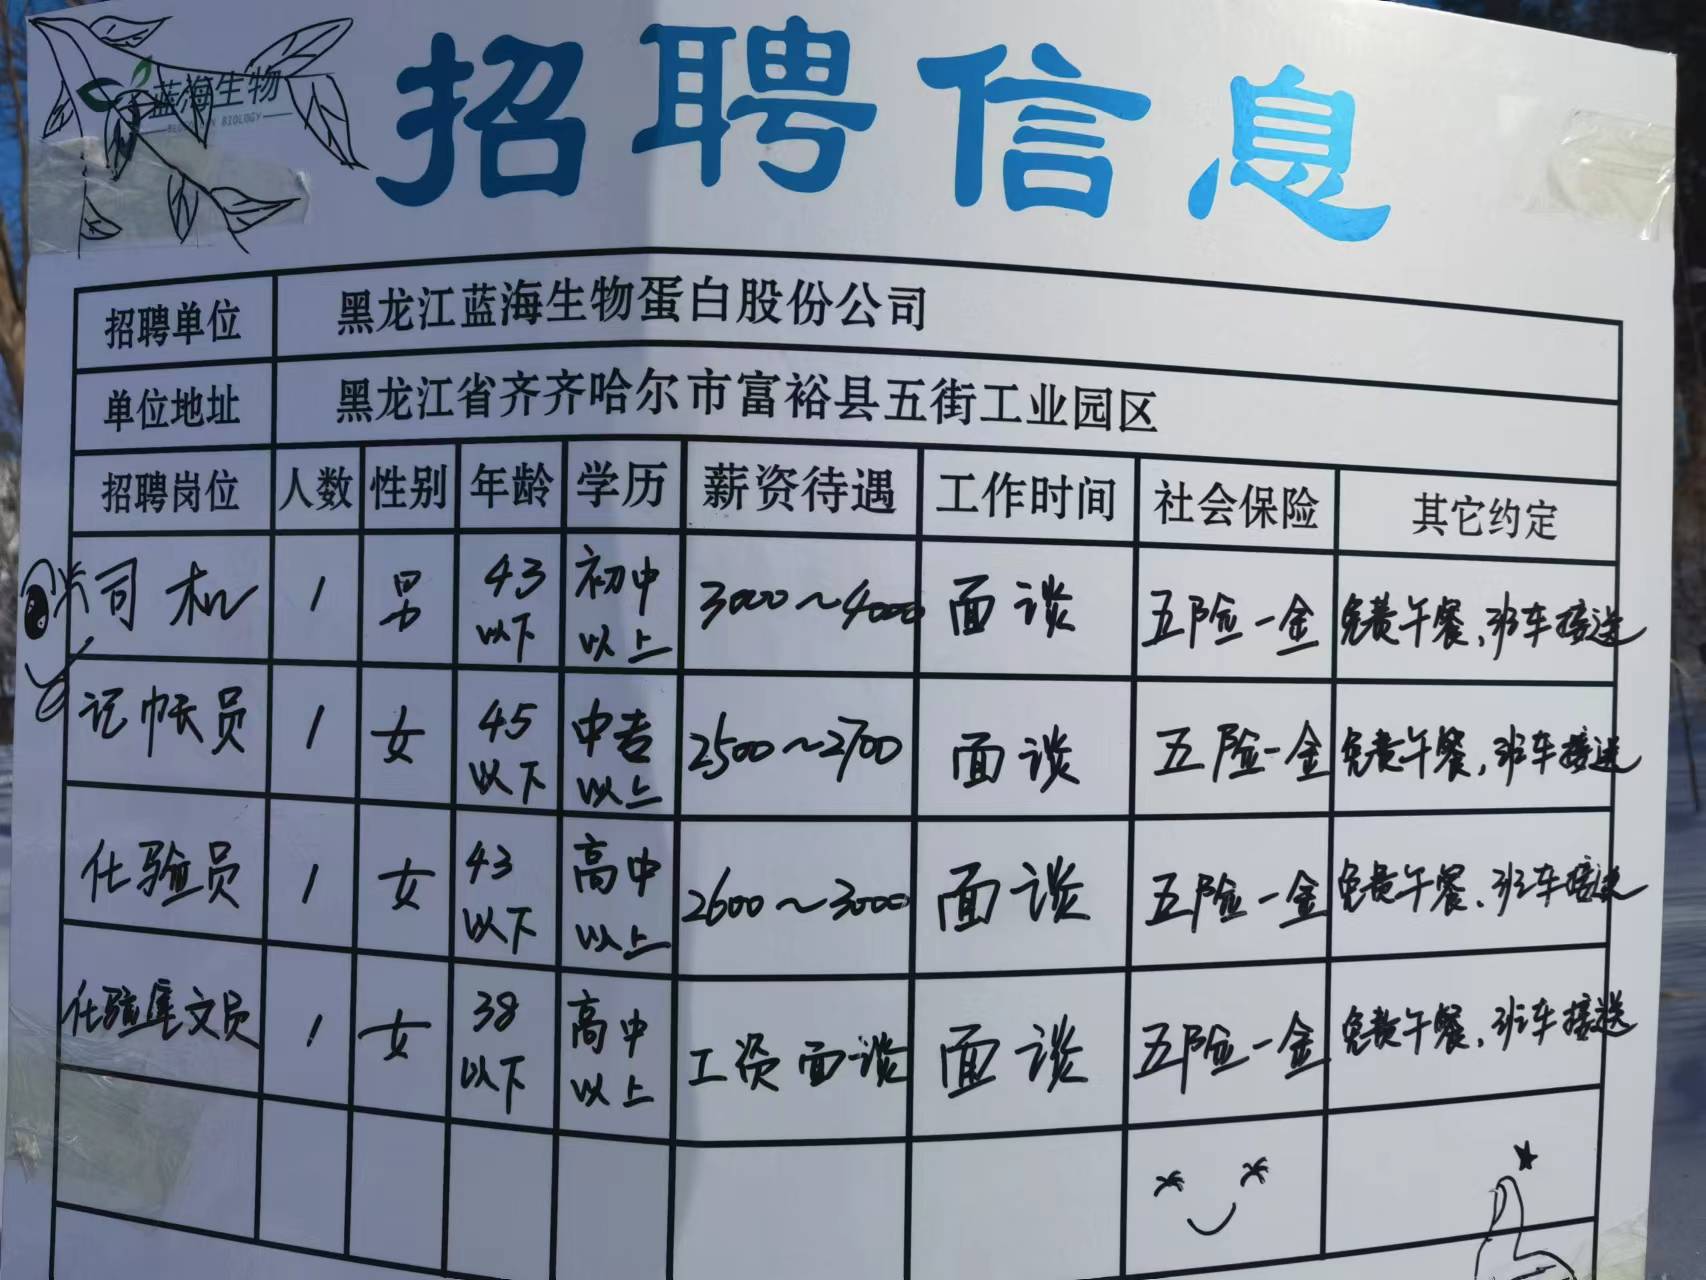 蓝海生物
BIOLOGY
招聘信息
招聘单位 黑龙江蓝海生物蛋白股份公司
单位地址 黑龙江省齐齐哈尔市富裕县五街工业园区
招聘岗位 人数 性别 年龄 学历 薪资待遇 工作时间 社会保险 其它约定
司机 1 男 43以下 初中以上 3000~4000 面谈 五险一金 免费午餐、班车接送
记帐员 1 女 45以下 中专以上 2500~2700 面谈 五险一金 免费午餐，班车接送
化验员 1 女 43以下 高中以上 2600~3000 面谈 五险一金 免费午餐、班车接送
化验室文员 1 女 38以下 高中以上 工资面谈 面谈 五险一金 免费午餐、班车接送